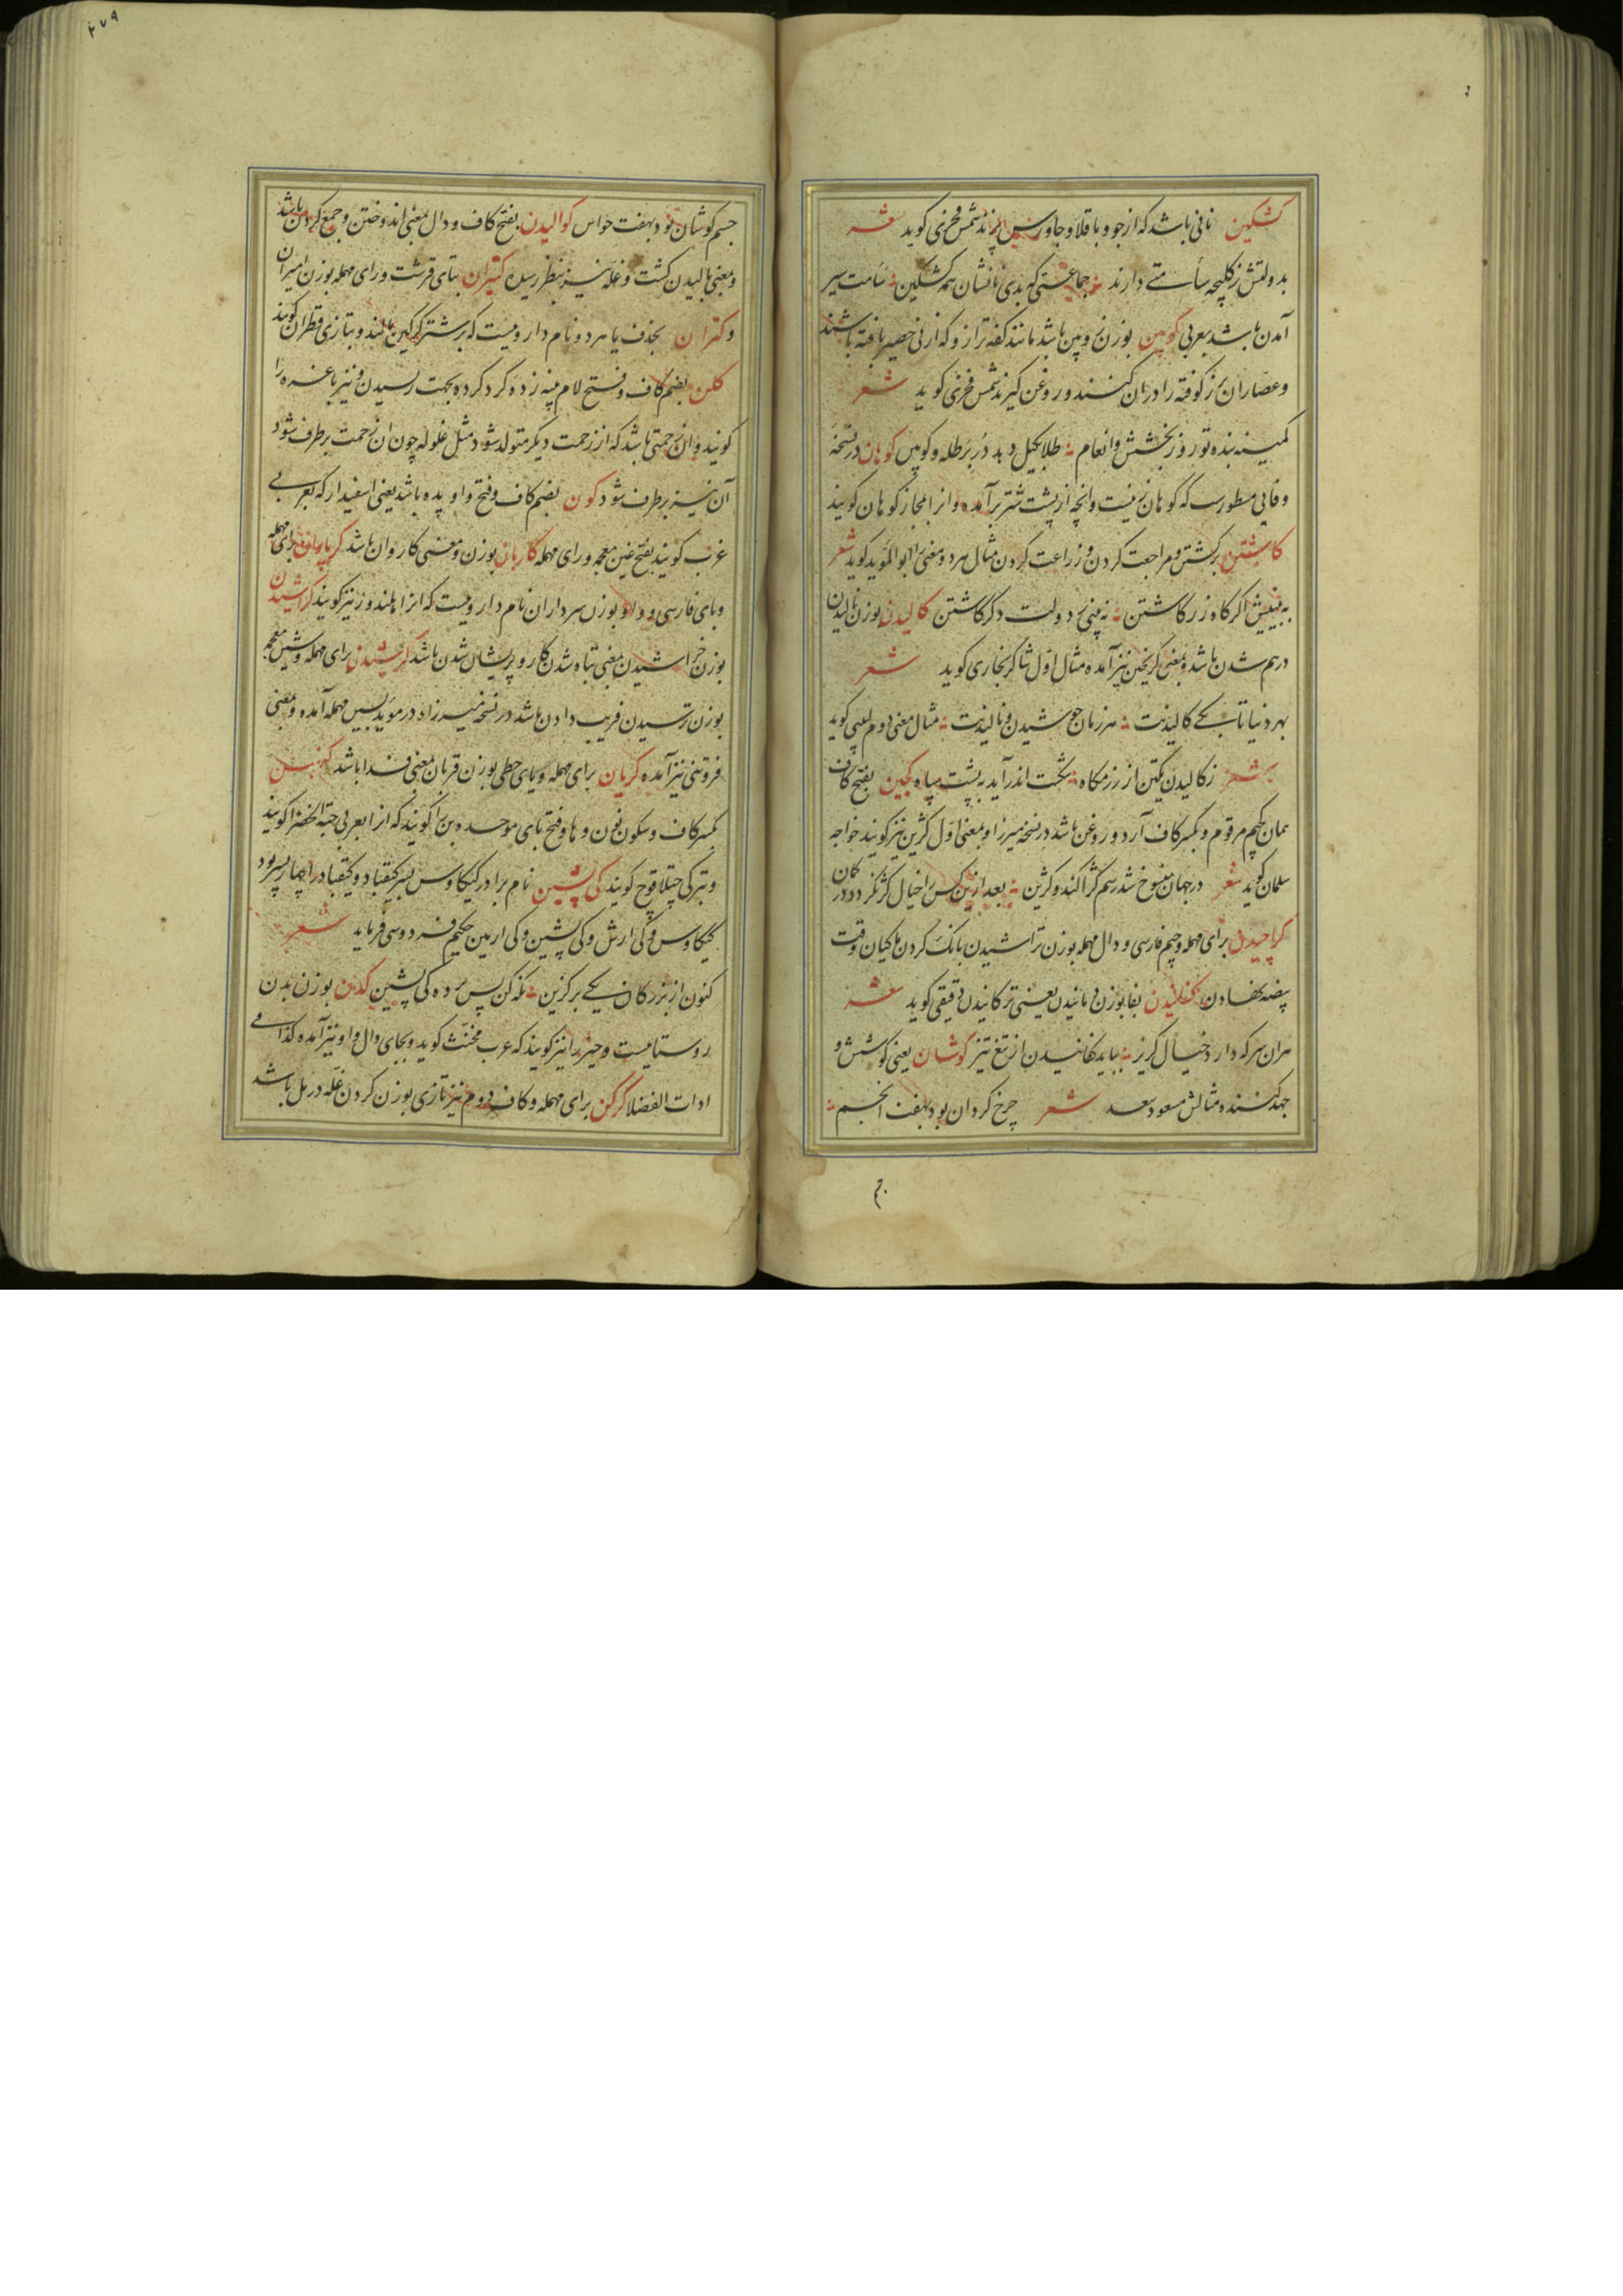 کشکین نانی باشد که از جو و باقلا و جاورس پزند شمس فخری کوید شعر
بدولتش ز کلیچه سآمتی دارند جماعتی که بدی نانشان همه کشکین سآمت سیر
آمدن باشد بعربی کوپین بوزن روپین باشد مانند کفه ترازو که از نی حصیر بافته باشند
و عصاران بزر کوفته را در آن کنند و روغن کیرند شمس فخری کوید شعر
کمینه بنده تو روز بخشش و انعام طلا بکیل دهد در بر طله و کوپین کوهان در نسخه
وفایی مسطورست که کوهان زینست و آنچه از پشت شتر برآمده و آنرا مجاز کوهان کویند
کاشتن برکشتن و مراجعت کردن و زراعت کردن مثال هر دو معنی را ابوالمؤید کوید شعر
به بینیش اکر کاه زر کاشتن نه بینی ز دولت دکر کاشتن کالیدن بوزن نالیدن
درهم شدن باشد و بمعنی کریختن نیز آمده مثال اول شاکر بخاری کوید شعر
بهر دنیا تا بکی کالیدنت هر زمان جوشیدن و نالیدنت مثال معنی دوم لبیبی کوید
شعر ز کالیدن یکتن از رزمکاه شکست اندر آید به پشت سپاه کجین بفتح کاف
همان کجیم مرقوم و بکسر کاف آرد و روغن باشد در نسخه میرزا و بمعنی اول کژین نیز کویند خواجه
سلمان کوید شعر در جهان منسوخ شد رسم کژاکند و کژین بعد ازین کس را خیال کژ نکردد در کمان
کراچیدن برای مهمله و جیم فارسی و دال مهمله بوزن تراشیدن بانک کردن ماکیان وقت
بیضه نهادن کفانیدن بفا بوزن دمانیدن یعنی ترکانیدن دقیقی کوید شعر
هران سر که دارد خیال کریز بباید کفانیدن از تیغ تیز کوشان یعنی کوشش و
جهد کننده مثالش مسعود سعد شعر چرخ کردان بود بهفت انجم
جسم
جسم کوشان بود بهفت حواس کوالیدن بفتح کاف و دال بمعنی اندوختن و جمع کردن باشد
و بمعنی بالیدن کشت و غله نیز بنظر رسیده کتیران بتای قرشت و رای مهمله بوزن امیران
و کتران بحذف یا هر دو نام داروییست که بر شتر کرکین مالند و بتازی قطران کویند
کلن بضم کاف و فتح لام پنبه زده کرد کرده بجهت ریسیدن و نیز باغره را
کویند و آن زحمتی باشد که از زحمت دیکر متولد شود مثل غلوله چون آن زحمت برطرف شود
آن نیز برطرف شود کون بضم کاف و فتح واو پده باشد یعنی اسفیدار که بعربی
غرب کویند بفتح غین معجمه و رای مهمله کاربان بوزن و معنی کاروان باشد کرپاوان برای مهمله
و بای فارسی و واو بوزن سرداران نام داروییست که آنرا هلندوز نیز کویند کراشیدن
بوزن خراشیدن بمعنی تباه شدن کار و پریشان شدن باشد کرشیدن برای مهمله و شین معجمه
بوزن ترسیدن فریب دادن باشد در نسخه میرزا و در مؤید بسین مهمله آمده و بمعنی
فروتنی نیز آمده کریان برای مهمله و یای حطی بوزن قربان بمعنی فدا باشد
بکسر کاف و سکون نون و ها و فتح بای موحده بن را کویند که آنرا بعربی حبة الخضرا کویند
و بترکی چتلاقوچ کویند کی پشین نام برادر کیکاوس پسر کیقباد و کیقباد را چهار پسر بود
کیکاوس و کی ارش و کی پشین و کی ارمین حکیم فردوسی فرماید شعر
کنون از بزرکان یکی برکزین نکه کن پس پرده کی پشین کدن بوزن بدن
روستاییست و حیز را نیز کویند که عرب مخنث کوید و بجای دال واو نیز آمده کذا فی
ادات الفضلا کرکن برای مهمله و کاف دوم نیز تازی بوزن کردن غله در مل باشد